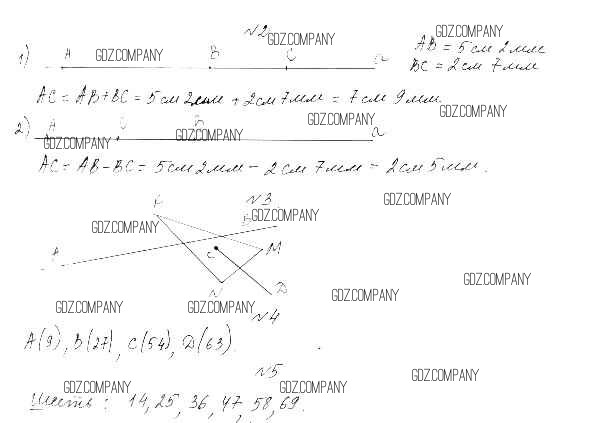 №2
GDZ.COMPANY
GDZ.COMPANY
1) A GDZ.COMPANY B C a
AB = 5 см 2 мм
BC = 2 см 7 мм
AC = AB + BC = 5 см 2 мм + 2 см 7 мм = 7 см 9 мм.
GDZ.COMPANY
GDZ.COMPANY
2) A C B a
GDZ.COMPANY
GDZ.COMPANY
AC = AB - BC = 5 см 2 мм - 2 см 7 мм = 2 см 5 мм.
№3
GDZ.COMPANY
K B
GDZ.COMPANY
GDZ.COMPANY
A C M
N D
GDZ.COMPANY
GDZ.COMPANY
GDZ.COMPANY
GDZ.COMPANY
№4
A(9), B(27), C(54), D(63).
№5
GDZ.COMPANY
GDZ.COMPANY
GDZ.COMPANY
Шесть: 14, 25, 36, 47, 58, 69.